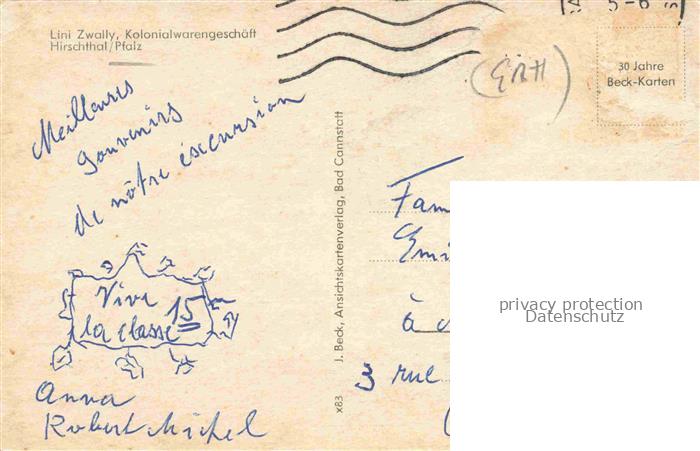 Lini Zwally, Kolonialwarengeschäft
Hirschthal/Pfalz
5-6
(GRH)
30 Jahre
Beck-Karten
Meilleures
Souvenirs
de nôtre éxcursion
J. Beck, Ansichtskartenverlag, Bad Cannstatt
x83
Fam
Emi
à
3 rue
Vive
la classe 15
Anna
Robert Michel
privacy protection
Datenschutz